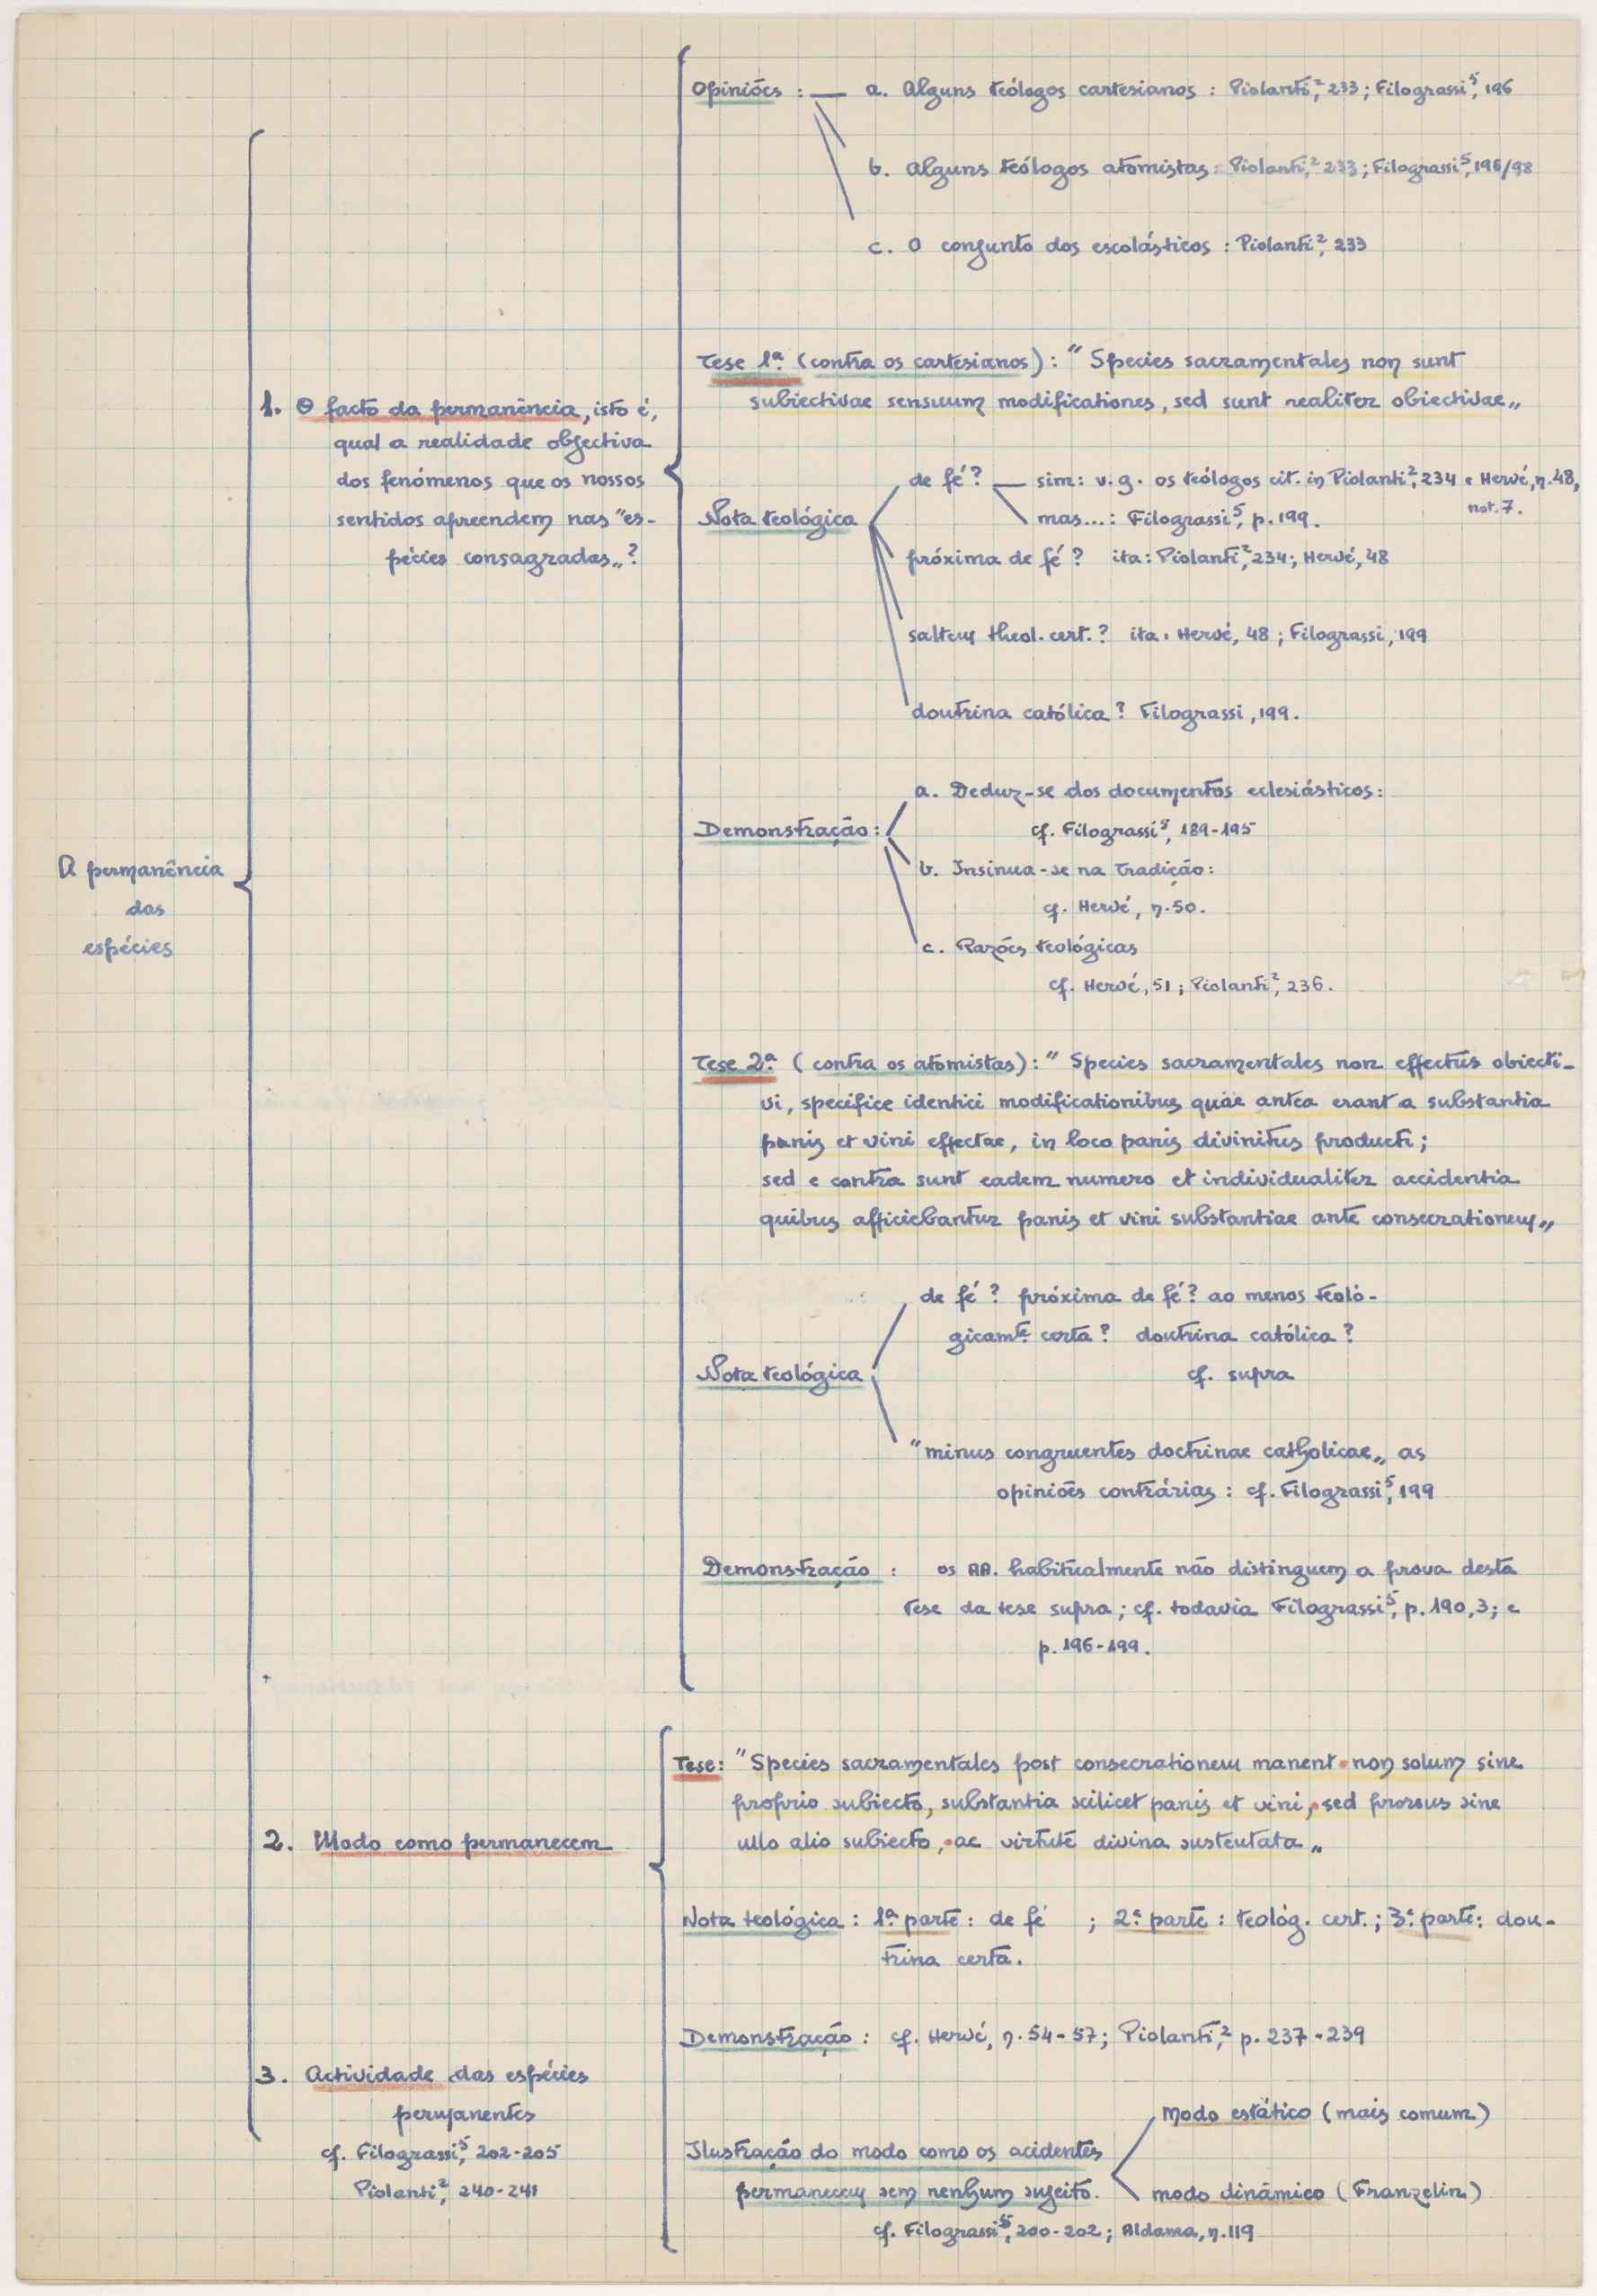 A permanência
das
espécies
1. O facto da permanência, isto é,
qual a realidade objectiva
dos fenómenos que os nossos
sentidos apreendem nas "es-
pécies consagradas„?
Opiniões : — a. Alguns teólogos cartesianos : Piolanti², 233 ; Filograssi⁵, 196
b. Alguns teólogos atomistas : Piolanti², 233 ; Filograssi⁵, 196/98
c. O conjunto dos escolásticos : Piolanti², 233
Tese 1ª. (contra os cartesianos) : "Species sacramentales non sunt
subiectivae sensuum modificationes, sed sunt realiter obiectivae„
Nota teológica
de fé? — sim: v.g. os teólogos cit. in Piolanti², 234 e Hervé, n.48,
not.7.
mas...: Filograssi⁵, p.199.
próxima de fé? ita: Piolanti², 234; Hervé, 48
saltem theol. cert.? ita: Hervé, 48 ; Filograssi, 199
doutrina católica? Filograssi, 199.
Demonstração :
a. Deduz-se dos documentos eclesiásticos:
cf. Filograssi⁵, 189-195
b. Insinua-se na Tradição:
cf. Hervé, n.50.
c. Razões teológicas
cf. Hervé, 51 ; Piolanti², 236.
Tese 2ª. (contra os atomistas) : "Species sacramentales non effectus obiecti-
vi, specifice identici modificationibus quae antea erant a substantia
panis et vini effectae, in loco panis divinitus producti;
sed e contra sunt eadem numero et individualiter accidentia
quibus afficiebantur panis et vini substantiae ante consecrationem„
Nota teológica
de fé? próxima de fé? ao menos teolo-
gicamte. certa? doutrina católica?
cf. supra
"minus congruentes doctrinae catholicae„ as
opiniões contrárias : cf. Filograssi⁵, 199
Demonstração : os AA. habitualmente não distinguem a prova desta
tese da tese supra; cf. todavia Filograssi⁵, p.190,3; e
p.196-199.
2. Modo como permanecem
Tese: "Species sacramentales post consecrationem manent non solum sine
proprio subiecto, substantia scilicet panis et vini, sed prorsus sine
ullo alio subiecto, ac virtute divina sustentata„
Nota teológica : 1ª. parte : de fé ; 2ª. parte : teológ. cert. ; 3ª. parte : dou-
trina certa.
Demonstração : cf. Hervé, n.54-57; Piolanti², p.237-239
Ilustração do modo como os acidentes
permanecem sem nenhum sujeito.
Modo estático (mais comum)
modo dinâmico (Franzelin)
cf. Filograssi⁵, 200-202 ; Aldama, n.119
3. Actividade das espécies
permanentes
cf. Filograssi⁵, 202-205
Piolanti², 240-241